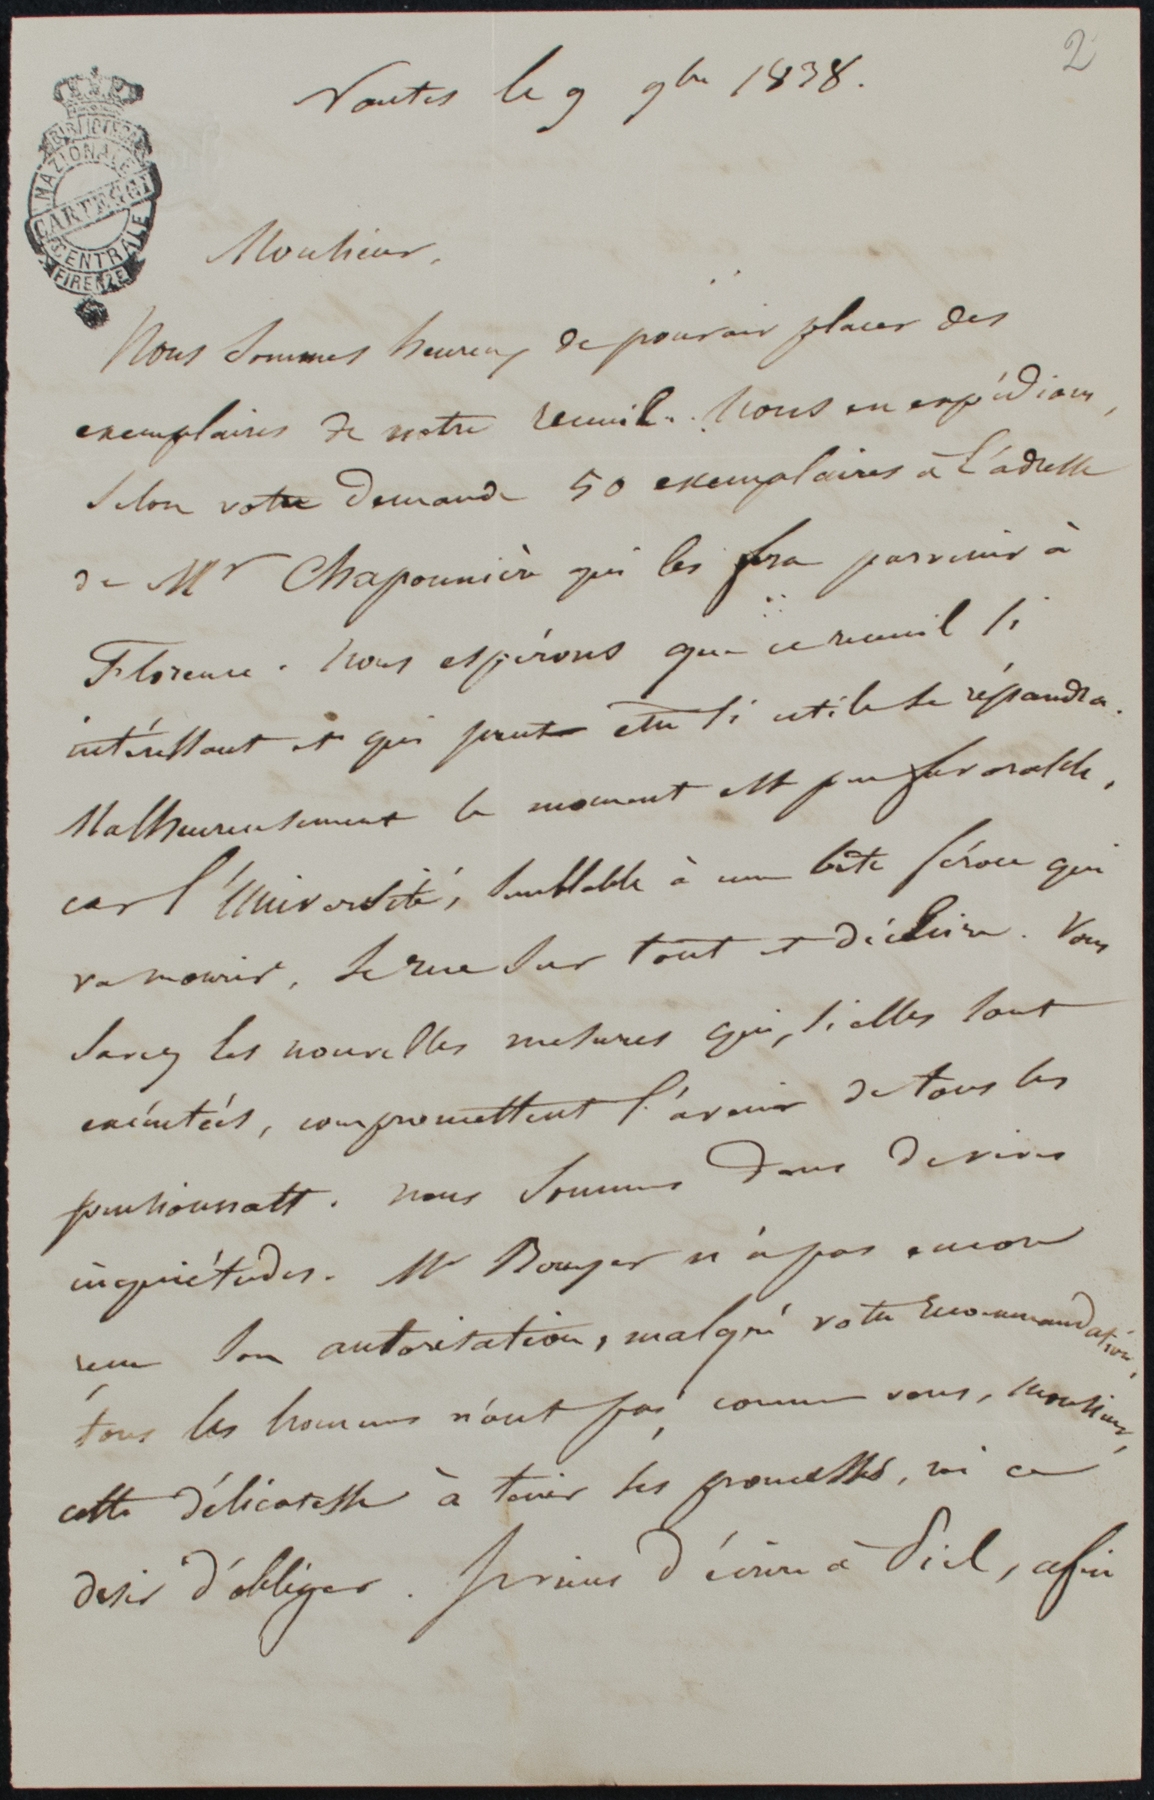 2
Nantes le 9 9bre 1838.
BIBLIOTECA
NAZIONALE
CARTEGGI
CENTRALE
FIRENZE
Monsieur,
Nous sommes heureux de pouvoir placer des
exemplaires de notre recueil. Nous en expédions,
selon votre demande 50 exemplaires à l'adresse
de Mr Chaponnière qui les fera parvenir à
Florence. Nous espérons que ce recueil si
intéressant et qui peut être si utile se répandra.
Malheureusement le moment est peu favorable,
car l'Université, semblable à une bête féroce qui
va mourir, se rue sur tout et déchire. Vous
savez les nouvelles mesures qui, si elles sont
exécutées, compromettent l'avenir de tous les
pensionnats. nous sommes dans de vives
inquiétudes. Mr Bouyer n'a pas encore
reçu son autorisation, malgré votre recommandation,
tous les hommes n'ont pas, comme vous, Monsieur,
cette délicatesse à tenir ses promesses, ni ce
desir d'obliger. Je viens d'écrire à Piel, afin